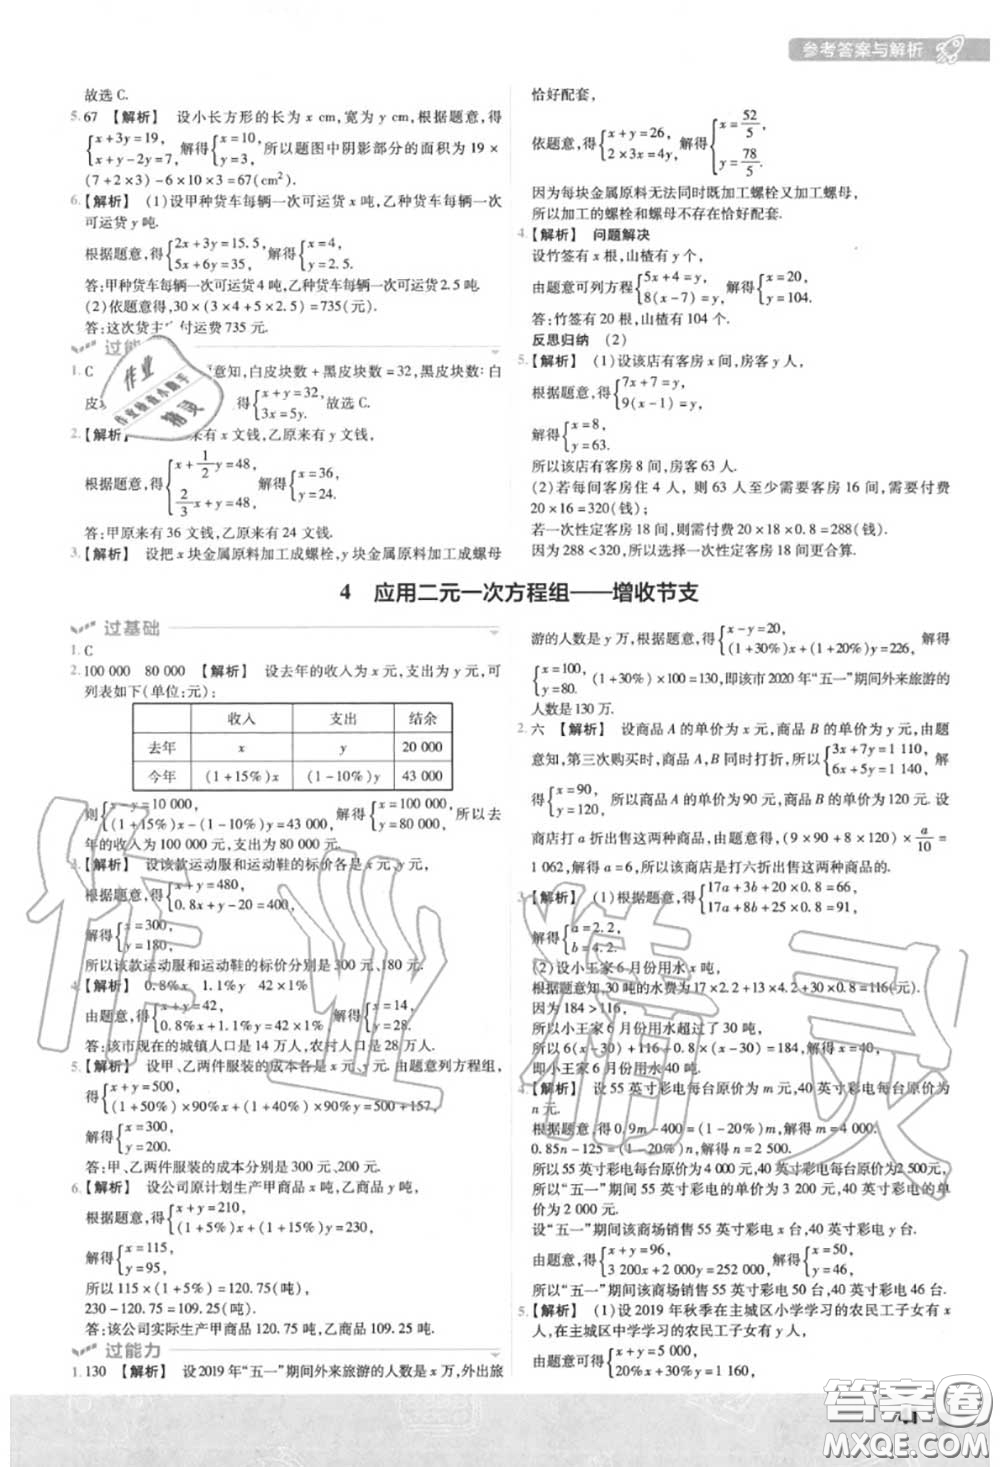 参考答案与解析
故选 C.
5. 67 【解析】 设小长方形的长为 x cm,宽为 y cm,根据题意,得
{x+3y=19, x+y-2y=7, 解得{x=10, y=3, 所以题图中阴影部分的面积为 19×
(7+2×3)-6×10×3=67(cm²).
6. 【解析】 (1)设甲种货车每辆一次可运货 x 吨,乙种货车每辆一次
可运货 y 吨.
根据题意,得{2x+3y=15.5, 5x+6y=35, 解得{x=4, y=2.5.
答:甲种货车每辆一次可运货 4 吨,乙种货车每辆一次可运货 2.5 吨.
(2)依题意得,30×(3×4+5×2.5)=735(元).
答:这次货主 付运费 735 元.
过能
1. C 意知,白皮块数+黑皮块数=32,黑皮块数:白
皮 得{x+y=32, 3x=5y. 故选 C.
2. 【解析】 来有 x 文钱,乙原来有 y 文钱.
根据题意,得{x+1/2 y=48, 2/3 x+y=48, 解得{x=36, y=24.
答:甲原来有 36 文钱,乙原来有 24 文钱.
3. 【解析】 设把 x 块金属原料加工成螺栓,y 块金属原料加工成螺母
恰好配套,
依题意,得{x+y=26, 2×3x=4y, 解得{x=52/5, y=78/5.
因为每块金属原料无法同时既加工螺栓又加工螺母,
所以加工的螺栓和螺母不存在恰好配套.
4. 【解析】 问题解决
设竹签有 x 根,山楂有 y 个.
由题意可列方程{5x+4=y, 8(x-7)=y, 解得{x=20, y=104.
答:竹签有 20 根,山楂有 104 个.
反思归纳 (2)
5. 【解析】 (1)设该店有客房 x 间,房客 y 人,
根据题意,得{7x+7=y, 9(x-1)=y,
解得{x=8, y=63.
所以该店有客房 8 间,房客 63 人.
(2)若每间客房住 4 人, 则 63 人至少需要客房 16 间,需要付费
20×16=320(钱);
若一次性定客房 18 间,则需付费 20×18×0.8=288(钱).
因为 288<320,所以选择一次性定客房 18 间更合算.
4 应用二元一次方程组——增收节支
过基础
1. C
2. 100 000 80 000 【解析】 设去年的收入为 x 元,支出为 y 元,可
列表如下(单位:元):
收入 支出 结余
去年 x y 20 000
今年 (1+15%)x (1-10%)y 43 000
则{x-y=10 000, (1+15%)x-(1-10%)y=43 000, 解得{x=100 000, y=80 000, 所以去
年的收入为 100 000 元,支出为 80 000 元.
3. 【解析】 设该款运动服和运动鞋的标价各是 x 元、y 元,
根据题意,得{x+y=480, 0.8x+y-20=400,
解得{x=300, y=180,
所以该款运动服和运动鞋的标价分别是 300 元、180 元.
4. 【解析】 0.8%x 1.1%y 42×1%
由题意,得{x+y=42, 0.8%x+1.1%y=42×1%, 解得{x=14, y=28.
答:该市现在的城镇人口是 14 万人,农村人口是 28 万人.
5. 【解析】 设甲、乙两件服装的成本各是 x 元、y 元. 由题意列方程组,
得{x+y=500, (1+50%)×90%x+(1+40%)×90%y=500+157,
解得{x=300, y=200.
答:甲、乙两件服装的成本分别是 300 元、200 元.
6. 【解析】 设公司原计划生产甲商品 x 吨,乙商品 y 吨,
根据题意,得{x+y=210, (1+5%)x+(1+15%)y=230,
解得{x=115, y=95,
所以 115×(1+5%)=120.75(吨),
230-120.75=109.25(吨).
答:该公司实际生产甲商品 120.75 吨,乙商品 109.25 吨.
过能力
1. 130 【解析】 设 2019 年“五一”期间外来旅游的人数是 x 万,外出旅
游的人数是 y 万,根据题意,得{x-y=20, (1+30%)x+(1+20%)y=226, 解得
{x=100, y=80. (1+30%)×100=130,即该市 2020 年“五一”期间外来旅游的
人数是 130 万.
2. 六 【解析】 设商品 A 的单价为 x 元,商品 B 的单价为 y 元,由题
意知,第三次购买时,商品 A、B 同时打折,得{3x+7y=1 110, 6x+5y=1 140, 解
得{x=90, y=120, 所以商品 A 的单价为90 元,商品 B 的单价为 120 元. 设
商店打 a 折出售这两种商品,由题意得,(9×90+8×120)×a/10=
1 062,解得 a=6,所以该商店是打六折出售这两种商品的.
3. 【解析】 (1)根据题意,得{17a+3b+20×0.8=66, 17a+8b+25×0.8=91,
解得{a=2.2, b=4.2.
(2)设小王家 6 月份用水 x 吨,
根据题意知,30 吨的水费为 17×2.2+13×4.2+30×0.8=116(元).
因为 184>116,
所以小王家 6 月份用水超过了 30 吨.
所以 6(x-30)+116+0.8×(x-30)=184,解得 x=40,
即小王家 6 月份用水 40 吨.
4. 【解析】 设 55 英寸彩电每台原价为 m 元,40 英寸彩电每台原价为
n 元.
根据题意,得 0.9m-400=(1-20%)m,解得 m=4 000.
0.85n-125=(1-20%)n,解得 n=2 500.
所以 55 英寸彩电每台原价为 4 000 元,40 英寸彩电每台原价为 2 500元.
所以“五一”期间 55 英寸彩电的单价为 3 200 元,40 英寸彩电的单
价为 2 000 元.
设“五一”期间该商场销售 55 英寸彩电 x 台,40 英寸彩电 y 台.
由题意,得{x+y=96, 3 200x+2 000y=252 000, 解得{x=50, y=46,
所以“五一”期间该商场销售 55 英寸彩电 50 台,40 英寸彩电 46 台.
5. 【解析】 (1)设 2019 年秋季在主城区小学学习的农民工子女有 x
人,在主城区中学学习的农民工子女有 y 人,
由题意可得{x+y=5 000, 20%x+30%y=1 160,
作业
作业检查小助手
精灵
作业精灵
答案圈
MXQE.COM